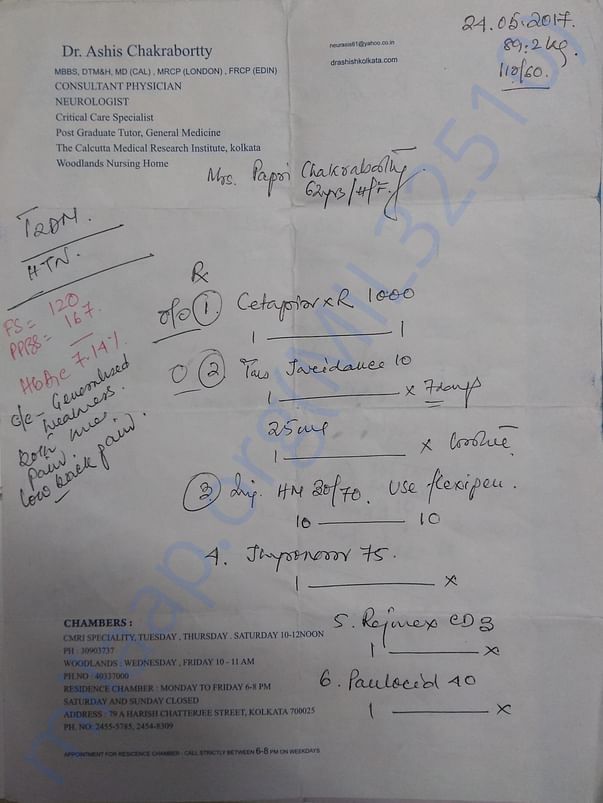 24.05.2017.
89.2 kg.
110/60.
Dr. Ashis Chakrabortty
MBBS, DTM&H, MD (CAL) , MRCP (LONDON) , FRCP (EDIN)
CONSULTANT PHYSICIAN
NEUROLOGIST
Critical Care Specialist
Post Graduate Tutor, General Medicine
The Calcutta Medical Research Institute, kolkata
Woodlands Nursing Home
neurasis61@yahoo.co.in
drashishkolkata.com
Mrs. Papri Chakraborthy.
62yrs/H/F.
T2DM.
HTN.
FS = 120
PPBS = 167.
HbA1c 7.14%.
c/c - Generalised
weakness.
both knee
pain.
low back pain.
Rx
1 Cetapin XR 1000
1 ——— 1
2 Tab Jardiance 10
1 ——— x 7days
25mg
1 ——— x continue
3 Inj. HM 30/70. Use flexipen.
10 ——— 10
4. 75.
1 ——— x
5. Rejunex CD3
1 ——— x
6. 40
1 ——— x
CHAMBERS :
CMRI SPECIALITY, TUESDAY , THURSDAY . SATURDAY 10-12NOON
PH : 30903737
WOODLANDS : WEDNESDAY , FRIDAY 10 - 11 AM
PH.NO : 40337000
RESIDENCE CHAMBER : MONDAY TO FRIDAY 6-8 PM
SATURDAY AND SUNDAY CLOSED
ADDRESS : 79 A HARISH CHATTERJEE STREET, KOLKATA 700025
PH. NO: 2455-5785, 2454-8309
APPOINTMENT FOR RESICENCE CHAMBER - CALL STRICTLY BETWEEN 6-8 PM ON WEEKDAYS